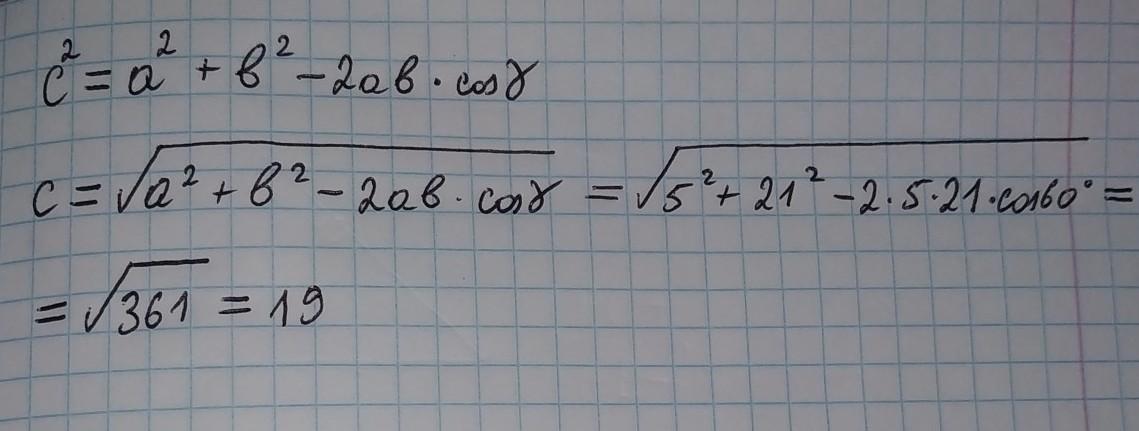 c² = a² + b² - 2ab · cosγ
c = √(a² + b² - 2ab · cosγ) = √(5² + 21² - 2·5·21·cos60°) =
= √361 = 19